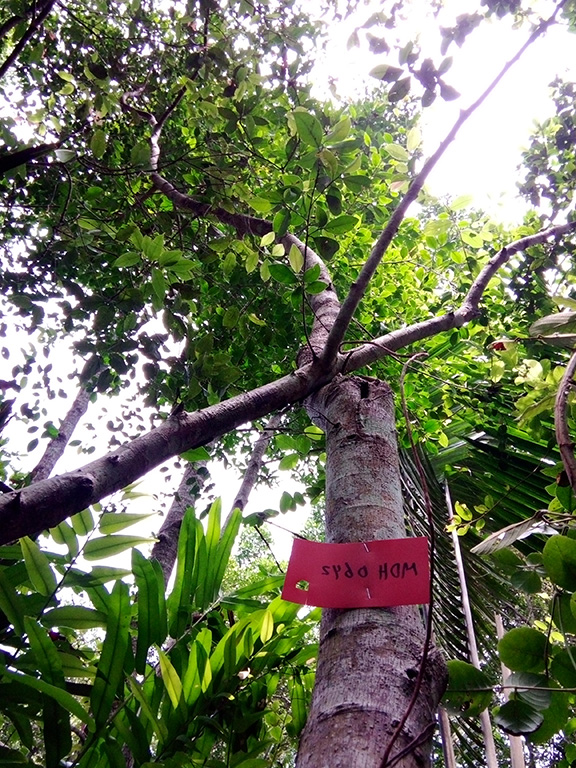 MDH 0642